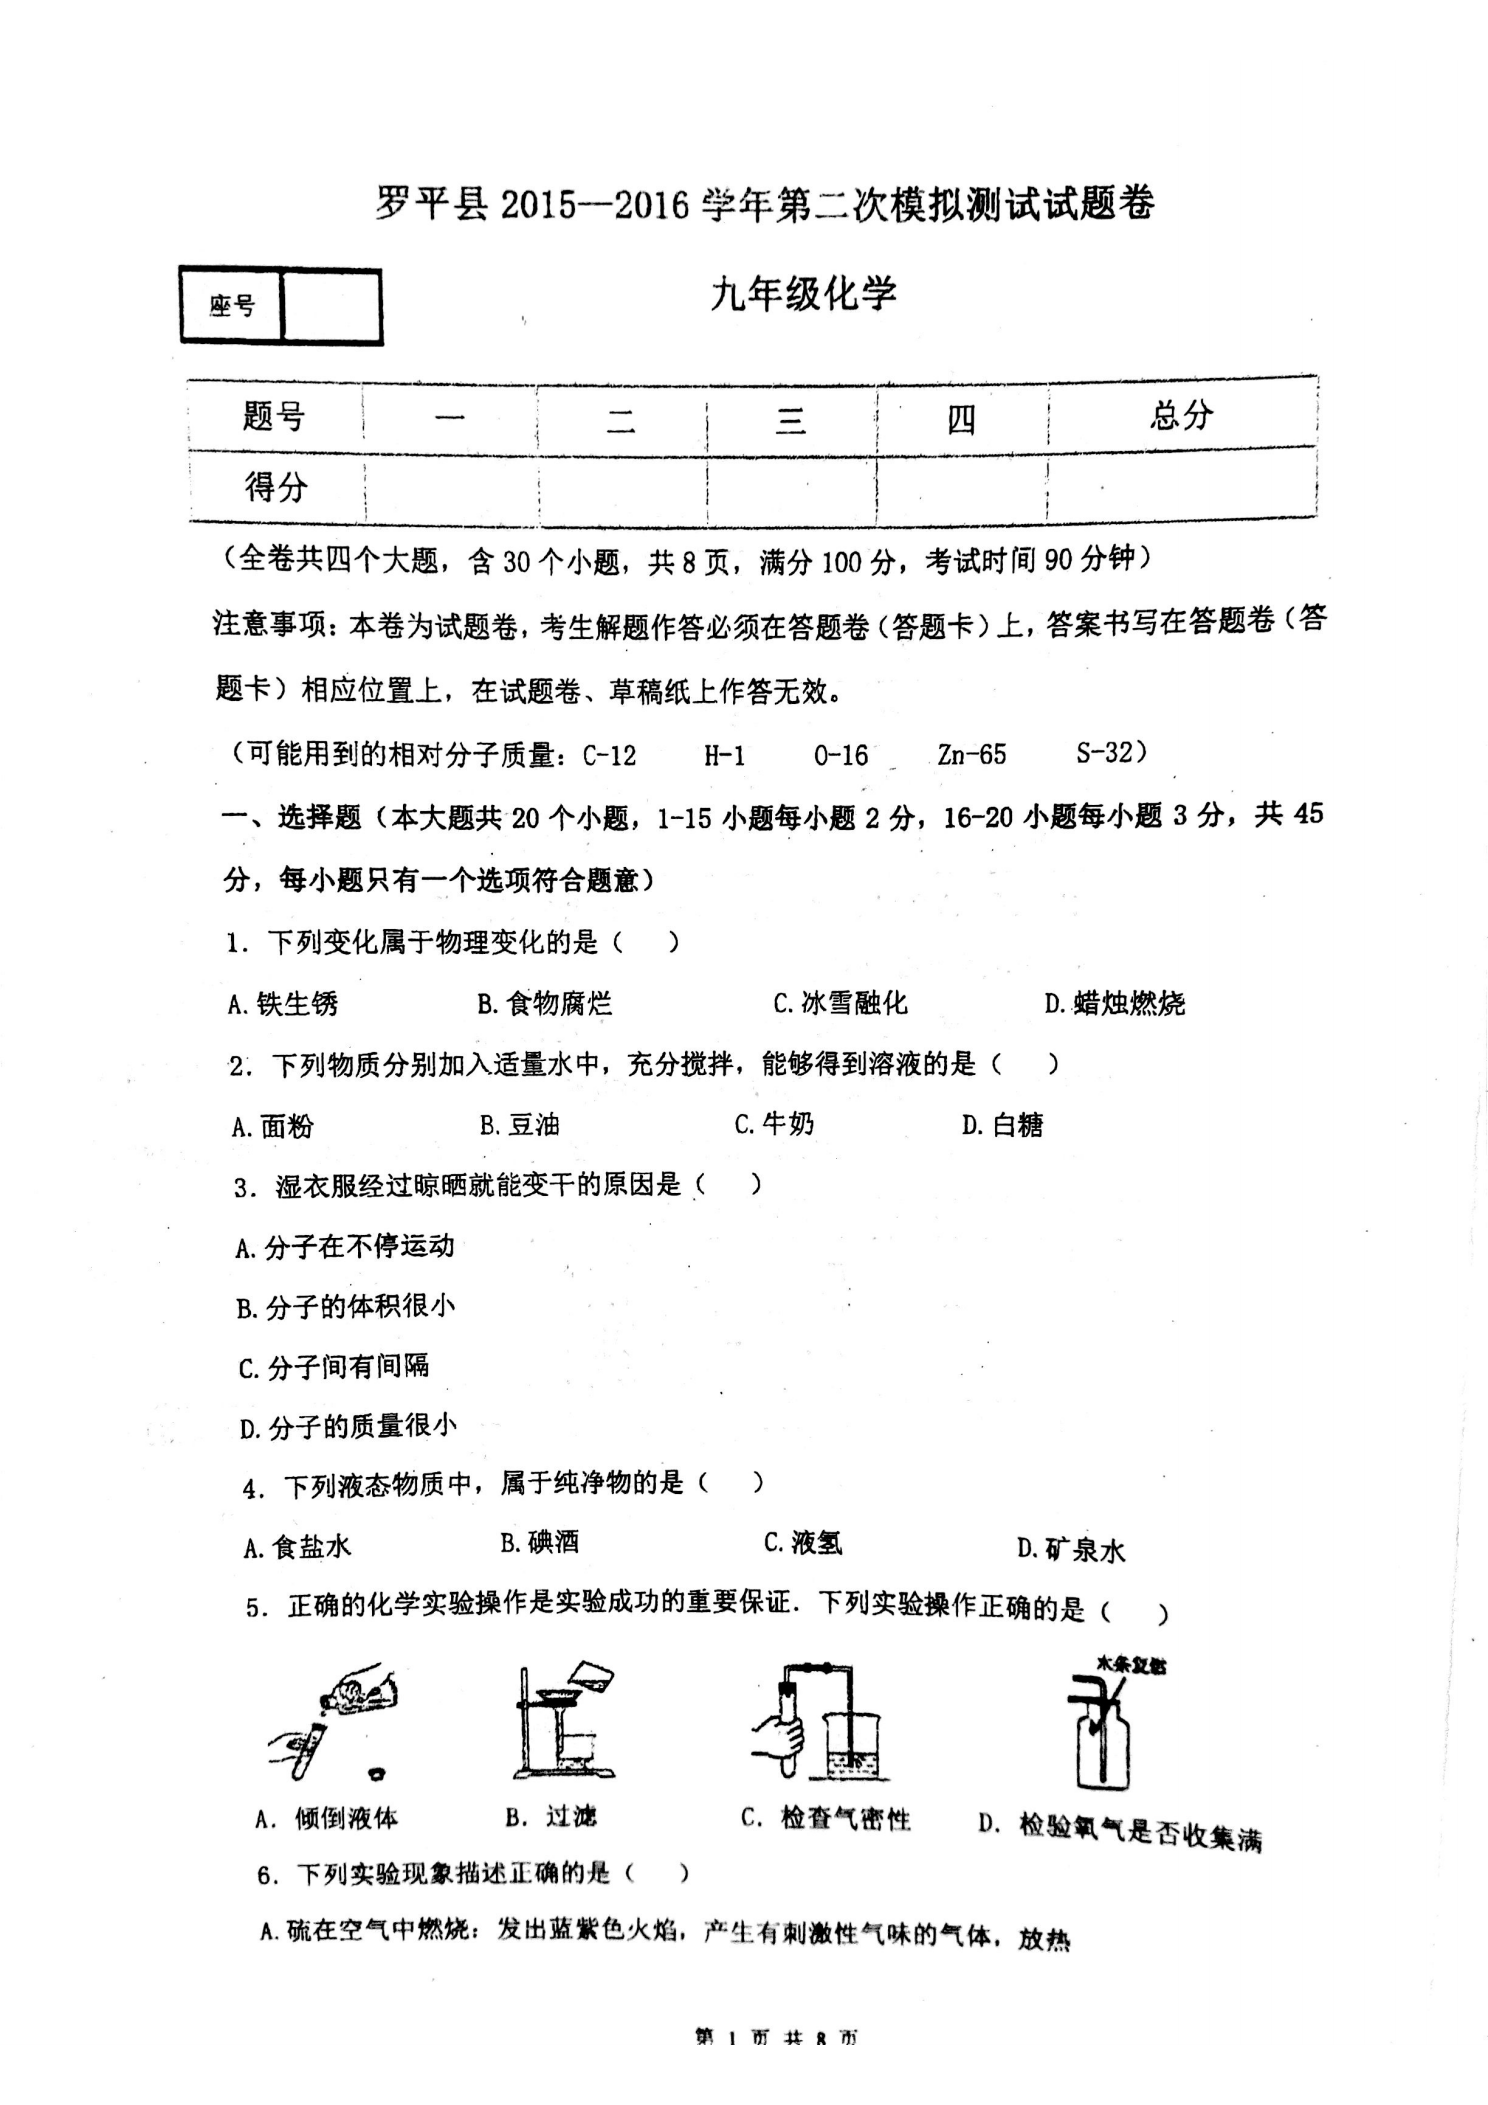 罗平县 2015—2016 学年第二次模拟测试试题卷
座号
九年级化学
题号 一 二 三 四 总分
得分
（全卷共四个大题，含 30 个小题，共 8 页，满分 100 分，考试时间 90 分钟）
注意事项：本卷为试题卷，考生解题作答必须在答题卷（答题卡）上，答案书写在答题卷（答
题卡）相应位置上，在试题卷、草稿纸上作答无效。
（可能用到的相对分子质量：C-12 H-1 O-16 Zn-65 S-32）
一、选择题（本大题共 20 个小题，1-15 小题每小题 2 分，16-20 小题每小题 3 分，共 45
分，每小题只有一个选项符合题意）
1．下列变化属于物理变化的是（ ）
A.铁生锈 B.食物腐烂 C.冰雪融化 D.蜡烛燃烧
2．下列物质分别加入适量水中，充分搅拌，能够得到溶液的是（ ）
A.面粉 B.豆油 C.牛奶 D.白糖
3．湿衣服经过晾晒就能变干的原因是（ ）
A.分子在不停运动
B.分子的体积很小
C.分子间有间隔
D.分子的质量很小
4．下列液态物质中，属于纯净物的是（ ）
A.食盐水 B.碘酒 C.液氢 D.矿泉水
5．正确的化学实验操作是实验成功的重要保证．下列实验操作正确的是（ ）
木条复燃
A．倾倒液体 B．过滤 C．检查气密性 D．检验氧气是否收集满
6．下列实验现象描述正确的是（ ）
A.硫在空气中燃烧：发出蓝紫色火焰，产生有刺激性气味的气体，放热
第 1 页 共 8 页